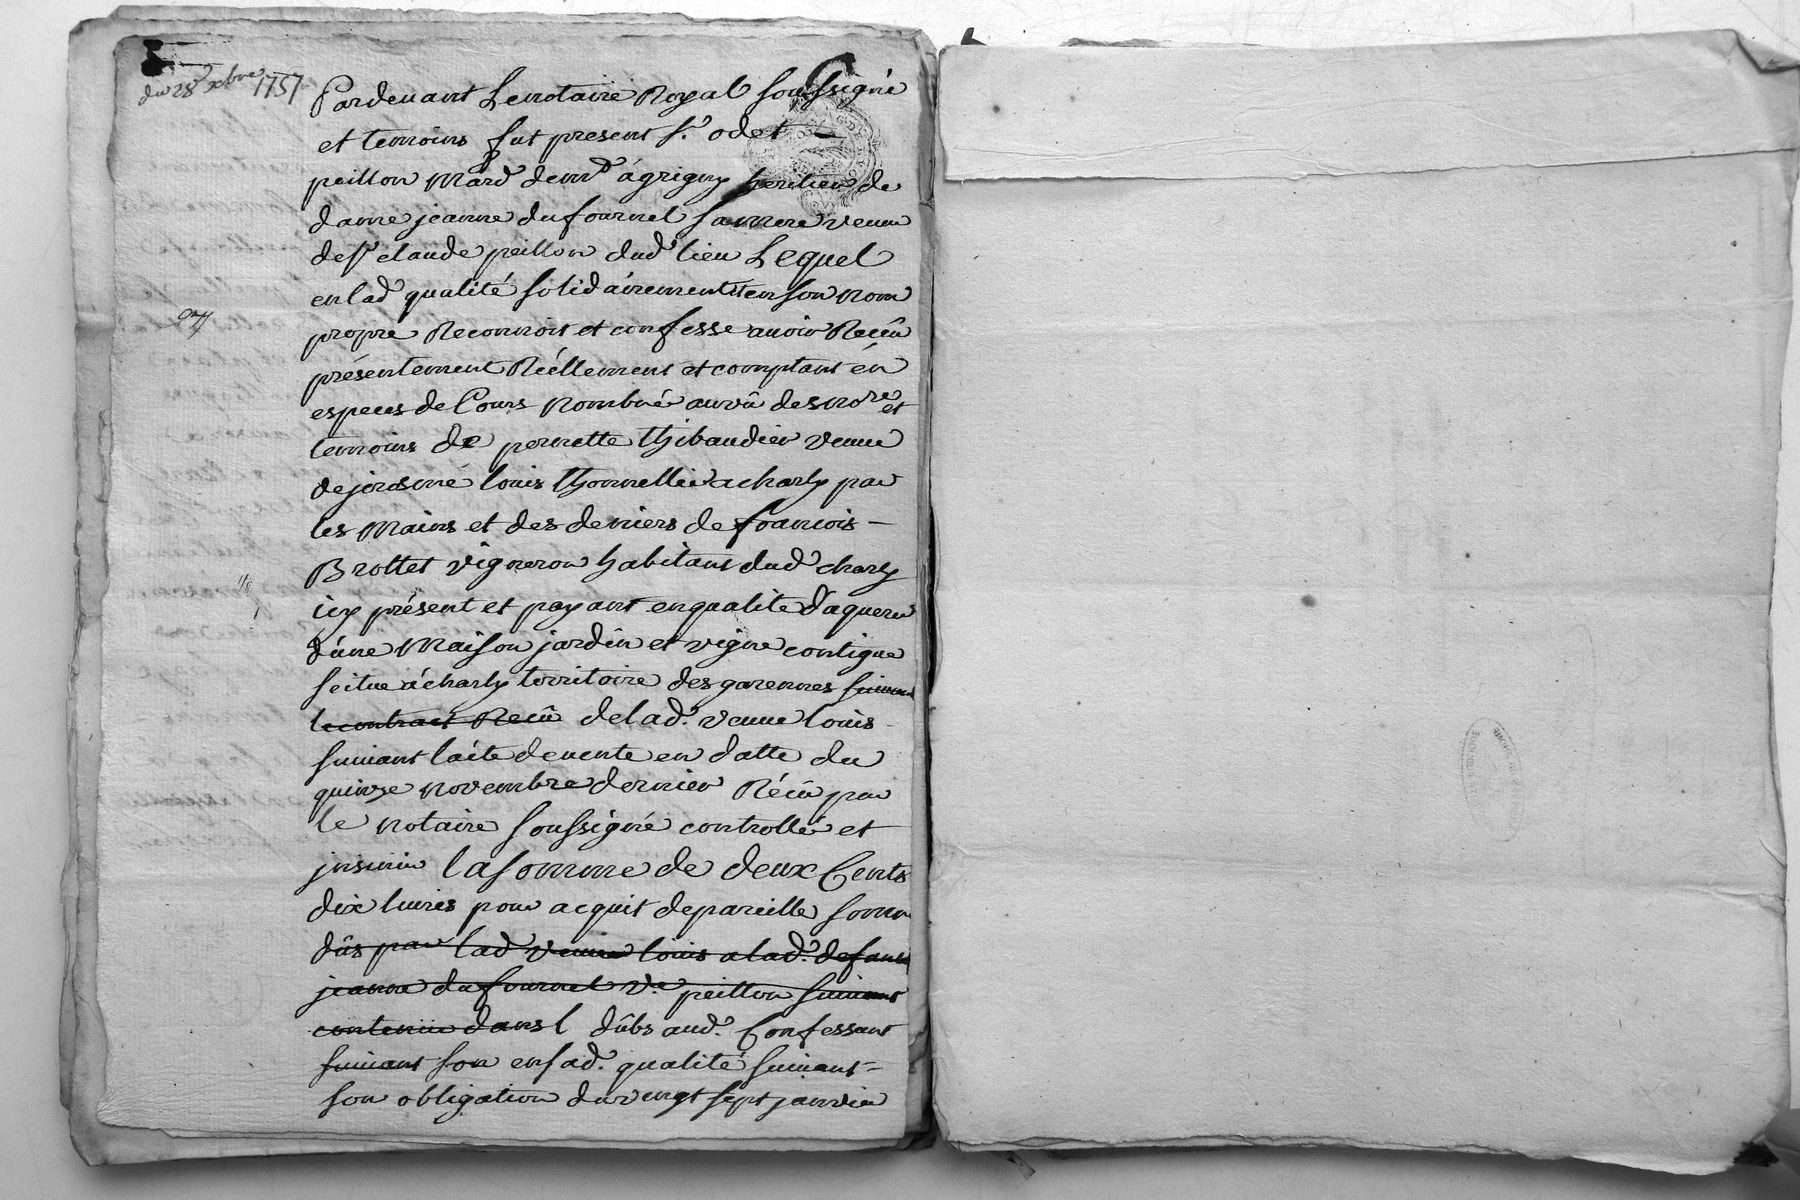 du 28 xbre 1757
Pardevant Le notaire Royal soussigné
et temoins fut present sr. odet
peillon Mard demt á grigny heritier de
dame jeanne du fournel sa mere veuve
de sr claude peillon dud lieu Lequel
en lad qualité solidairement et en son nom
propre Reconnoit et confesse avoir Receu
présentement Réellement et comptant én
especes de Cours Nombré au vû des nores et
temoins de pernette thibaudier veuve
de louis thonnellier a charly par
les Mains et des deniers de francois
Brottet vigneron habitant dud charly
icy présent et payant en qualité d'aquereur
d'une Maison jardin et vigne contigue
scitue á charly territoire des garennes suivant
le contract Receu de lad. veuve louis
suivant l'acte de vente en datte du
quinze novembre dernier Récu par
le notaire soussigné controllé et
jnsinué la somme de deux Cents
dix livres pour acquit de pareille somme
dûs par lad veuve louis a lad. defunte
jeanne du fournel ve. peillon suivant
contenue dans l dûbs aud. Confessant
suivant son en sad. qualité suivant
son obligation du vingt sept janvier